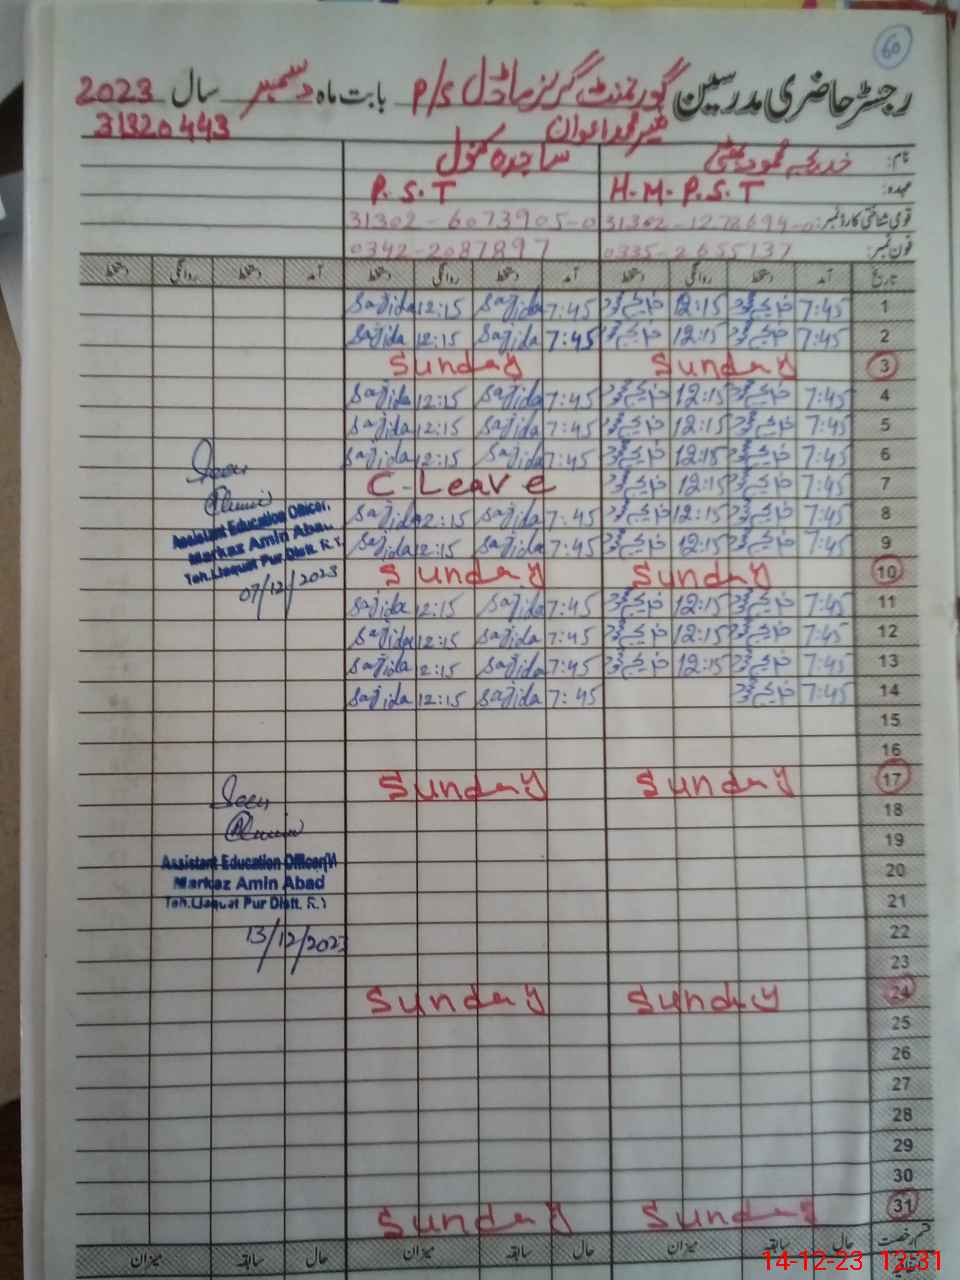 60
رجسٹر حاضری مدرسین گورنمنٹ گرلز ماڈل P/S بابت ماہ دسمبر سال 2023
31320443
نام: خدیجہ محمود بھٹی ساجدہ کنول
عہدہ: H.M-P.S.T P.S.T
قومی شناختی کارڈ نمبر: 31302-1272694-0 31302-6073905-0
فون نمبر: 0335-2655137 0342-2087897
تاریخ آمد دستخط روانگی دستخط آمد دستخط روانگی دستخط آمد دستخط روانگی دستخط
1 7:45 خدیجہ محمود 12:15 خدیجہ محمود 7:45 Sajida 12:15 Sajida
2 7:45 خدیجہ محمود 12:15 خدیجہ محمود 7:45 Sajida 12:15 Sajida
3 Sunday Sunday
4 7:45 خدیجہ محمود 12:15 خدیجہ محمود 7:45 Sajida 12:15 Sajida
5 7:45 خدیجہ محمود 12:15 خدیجہ محمود 7:45 Sajida 12:15 Sajida
6 7:45 خدیجہ محمود 12:15 خدیجہ محمود 7:45 Sajida 12:15 Sajida
7 7:45 خدیجہ محمود 12:15 خدیجہ محمود C-Leave
8 7:45 خدیجہ محمود 12:15 خدیجہ محمود 7:45 Sajida 12:15 Sajida
9 7:45 خدیجہ محمود 12:15 خدیجہ محمود 7:45 Sajida 12:15 Sajida
10 Sunday Sunday
11 7:45 خدیجہ محمود 12:15 خدیجہ محمود 7:45 Sajida 12:15 Sajida
12 7:45 خدیجہ محمود 12:15 خدیجہ محمود 7:45 Sajida 12:15 Sajida
13 7:45 خدیجہ محمود 12:15 خدیجہ محمود 7:45 Sajida 12:15 Sajida
14 7:45 خدیجہ محمود 7:45 Sajida 12:15 Sajida
15
16
17 Sunday Sunday
18
19
20
21
22
23
24 Sunday Sunday
25
26
27
28
29
30
31 Sunday Sunday
قسم رخصت حال سابقہ میزان حال سابقہ میزان حال سابقہ میزان
Seen
Assistant Education Officer,
Markaz Amin Abad
Teh.Liaquat Pur Distt. R.Y
07/12/2023
Seen
Assistant Education Officer(
Markaz Amin Abad
Teh.Liaquat Pur Distt. R.Y
13/12/2023
14-12-23 12:31